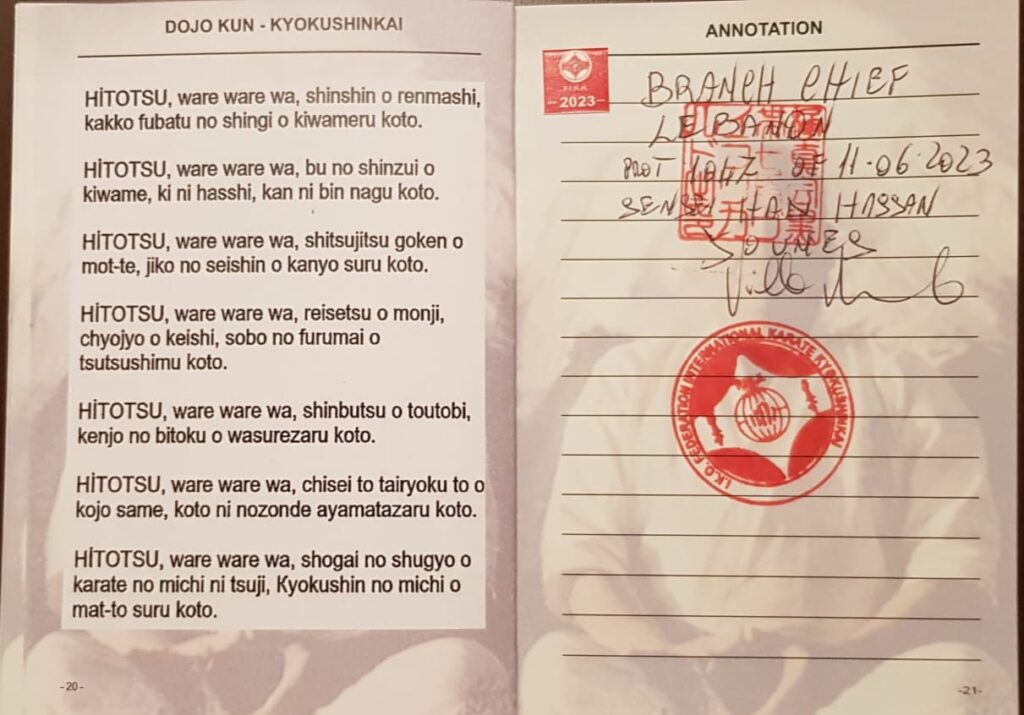 DOJO KUN - KYOKUSHINKAI
HİTOTSU, ware ware wa, shinshin o renmashi,
kakko fubatu no shingi o kiwameru koto.
HİTOTSU, ware ware wa, bu no shinzui o
kiwame, ki ni hasshi, kan ni bin nagu koto.
HİTOTSU, ware ware wa, shitsujitsu goken o
mot-te, jiko no seishin o kanyo suru koto.
HİTOTSU, ware ware wa, reisetsu o monji,
chyojyo o keishi, sobo no furumai o
tsutsushimu koto.
HİTOTSU, ware ware wa, shinbutsu o toutobi,
kenjo no bitoku o wasurezaru koto.
HİTOTSU, ware ware wa, chisei to tairyoku to o
kojo same, koto ni nozonde ayamatazaru koto.
HİTOTSU, ware ware wa, shogai no shugyo o
karate no michi ni tsuji, Kyokushin no michi o
mat-to suru koto.
-20-
ANNOTATION
-2023-
BRANCH CHIEF
LEBANON
PROT 1047 OF 11.06.2023
SENSEI HANI HASSAN
YOUNES
I.K.O. FEDERATION INTERNATIONAL KARATE KYOKUSHINKAI
-21-